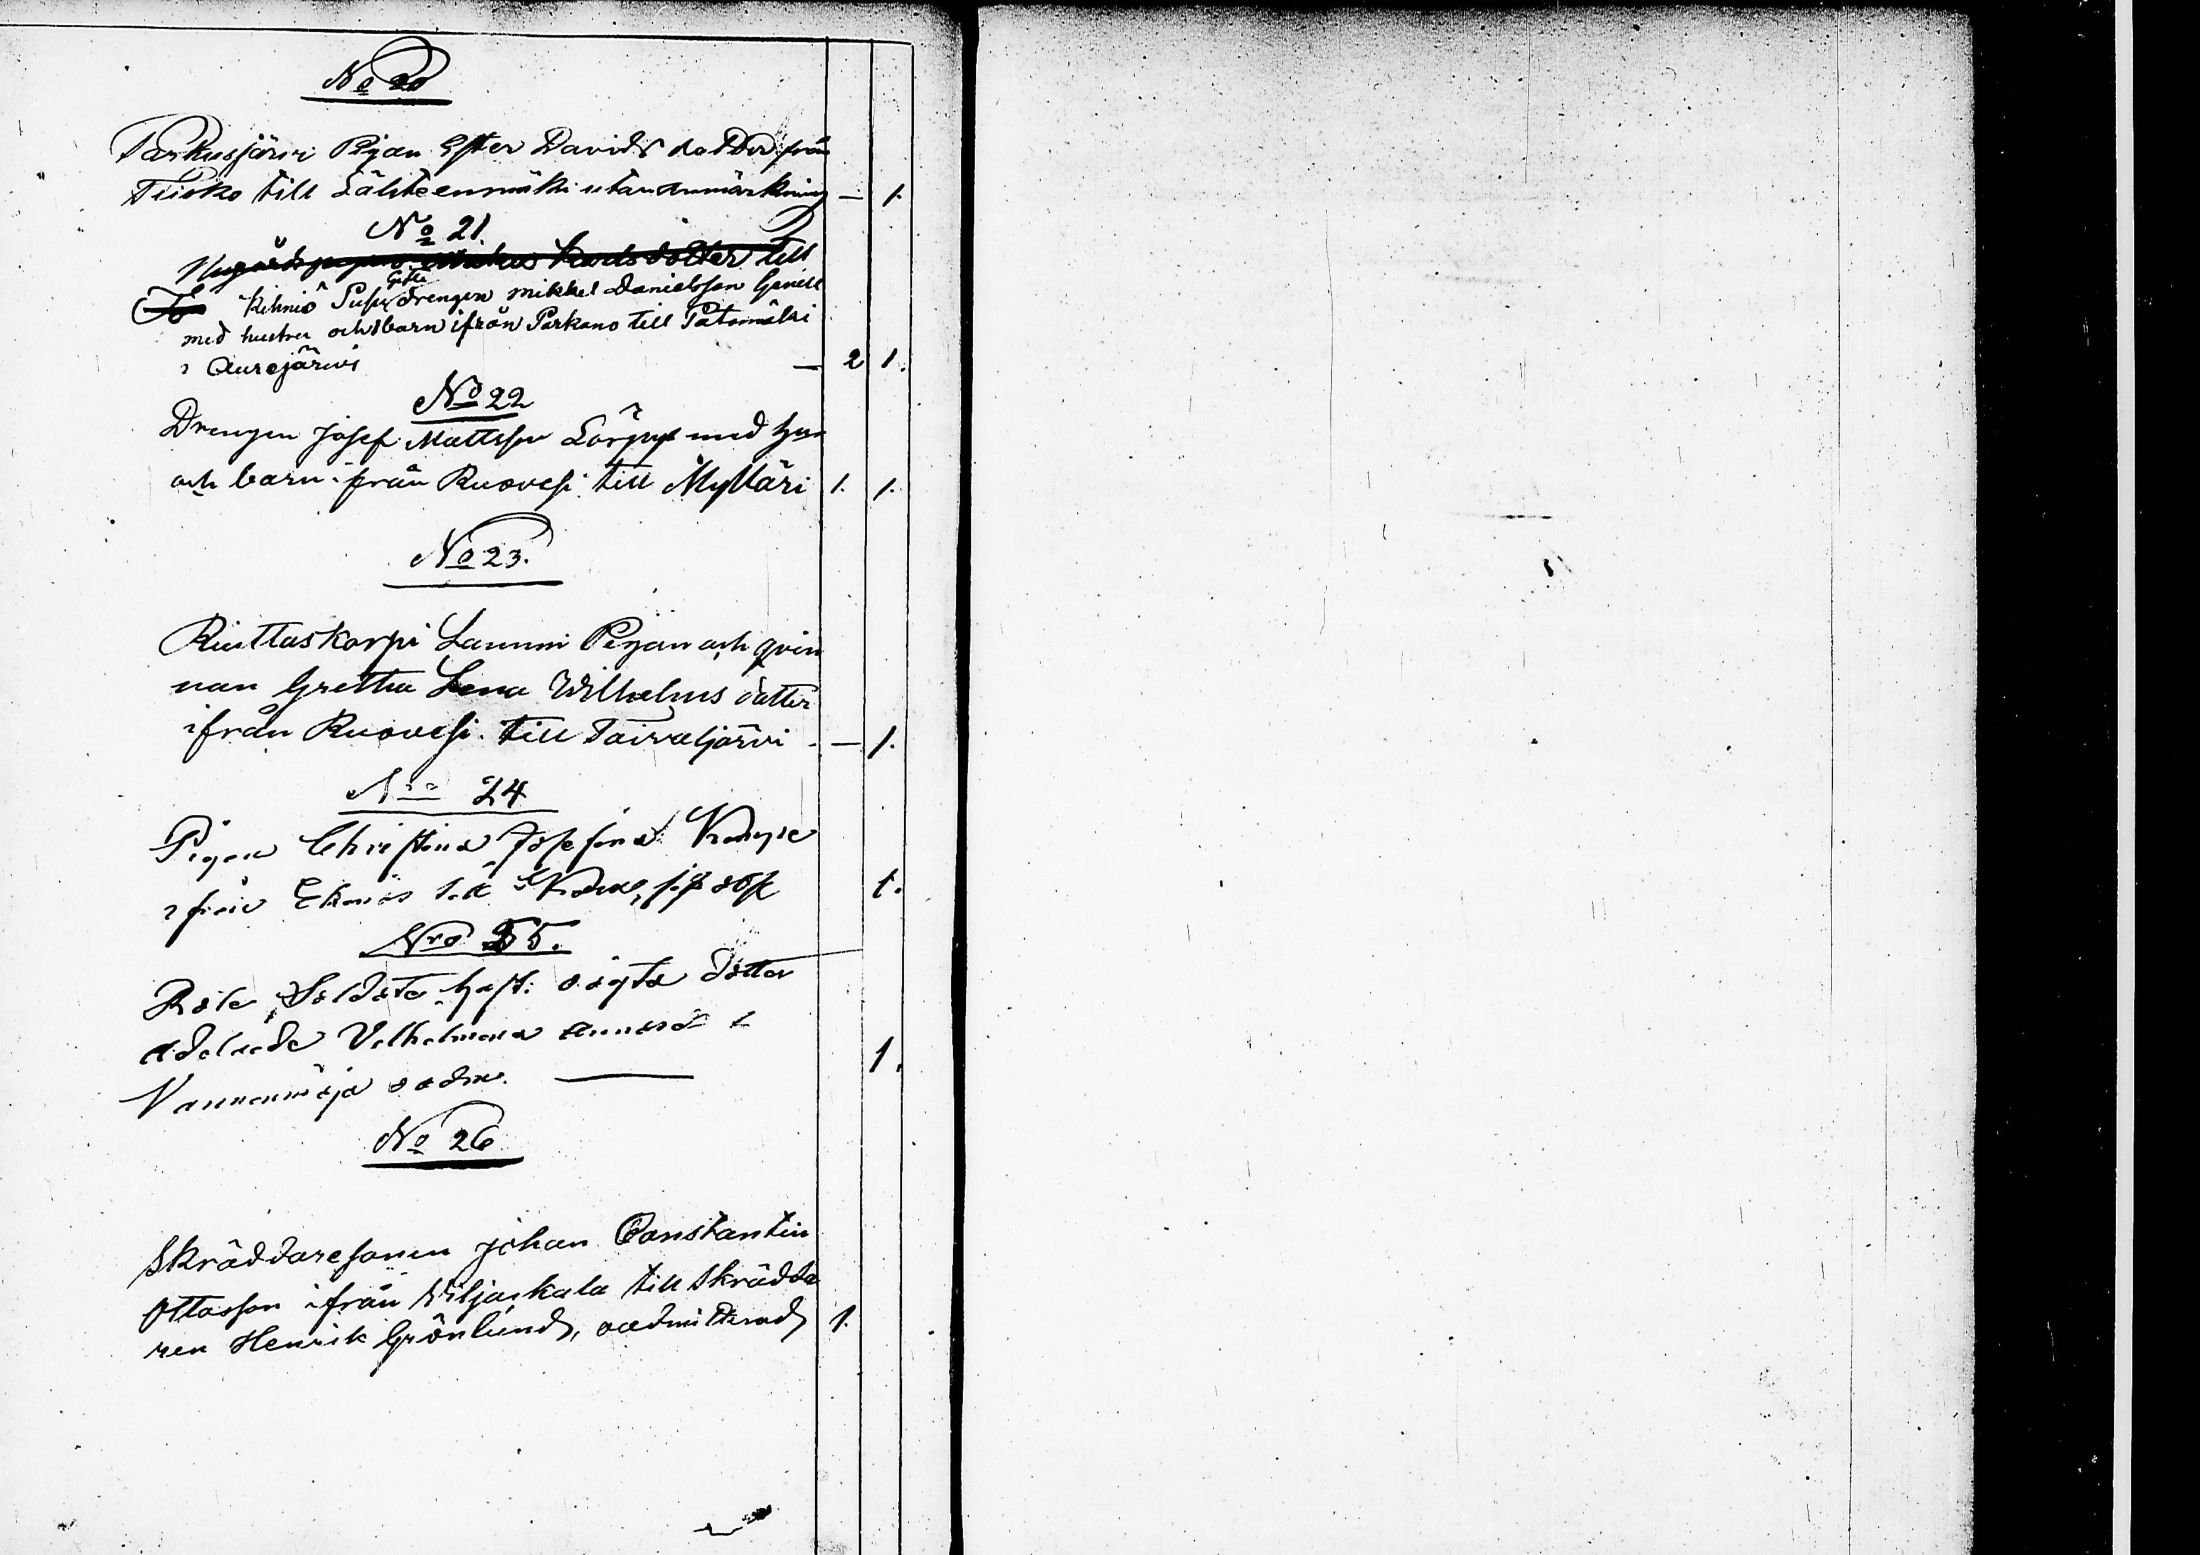 No 20
Parkusjärvi Pigan Ester Davids dotter från
Teisko till Lähteenmäki utan anmärkning — 1.
No 21.
Karlsdotter till
Kihniö Gifte drengen Mikkel Danielsson Genell
med hustru och 1 barn ifrån Parkano till Patomäki
i Aurejärvi — 2 1.
No 22
Drengen Josef Mattsson Törpys med hu
och barn ifrån Ruovesi till Mylläri 1. 1.
No 23.
Riuttaskorpi Lammi Pigan och qvin
nan Gretha Lena Wilhelms dotter
ifrån Ruovesi till Taivaljärvi — 1.
Nro 24
Pigan Christina Josefina
ifrån Ekenäs 1.
Nro 25.
Soldats dotter
Adelaide Vilhelmina
oadm. — 1.
No 26
Skräddaresonen Johan Constantin
Ottosson ifrån Viljakkala till skrädda
ren Henrik Grönlund, oadmitterad 1.